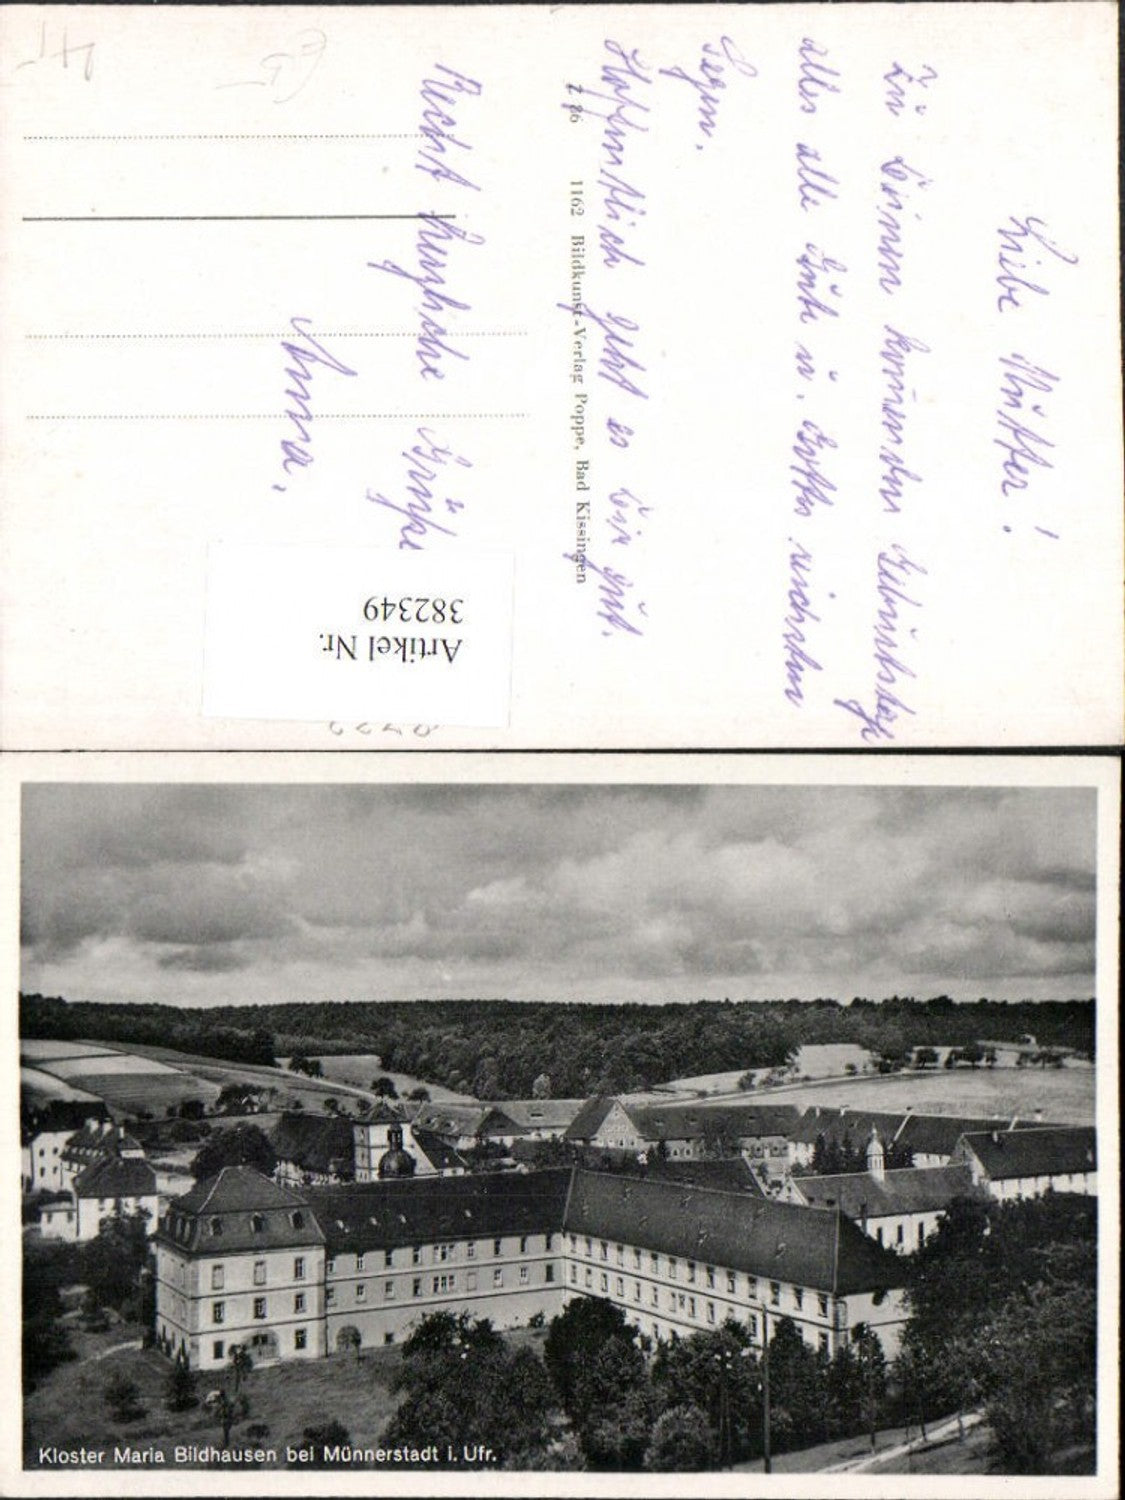 Liebe Mutter!
Zu Deinem kommenden Geburtstage
alles alle Gute u. Gottes reichsten
Segen.
Hoffentlich geht es Dir gut.
Recht herzliche Grüße
Anna.
Z 86 1162 Bildkunst-Verlag Poppe, Bad Kissingen
Artikel Nr.
382349
Kloster Maria Bildhausen bei Münnerstadt i. Ufr.